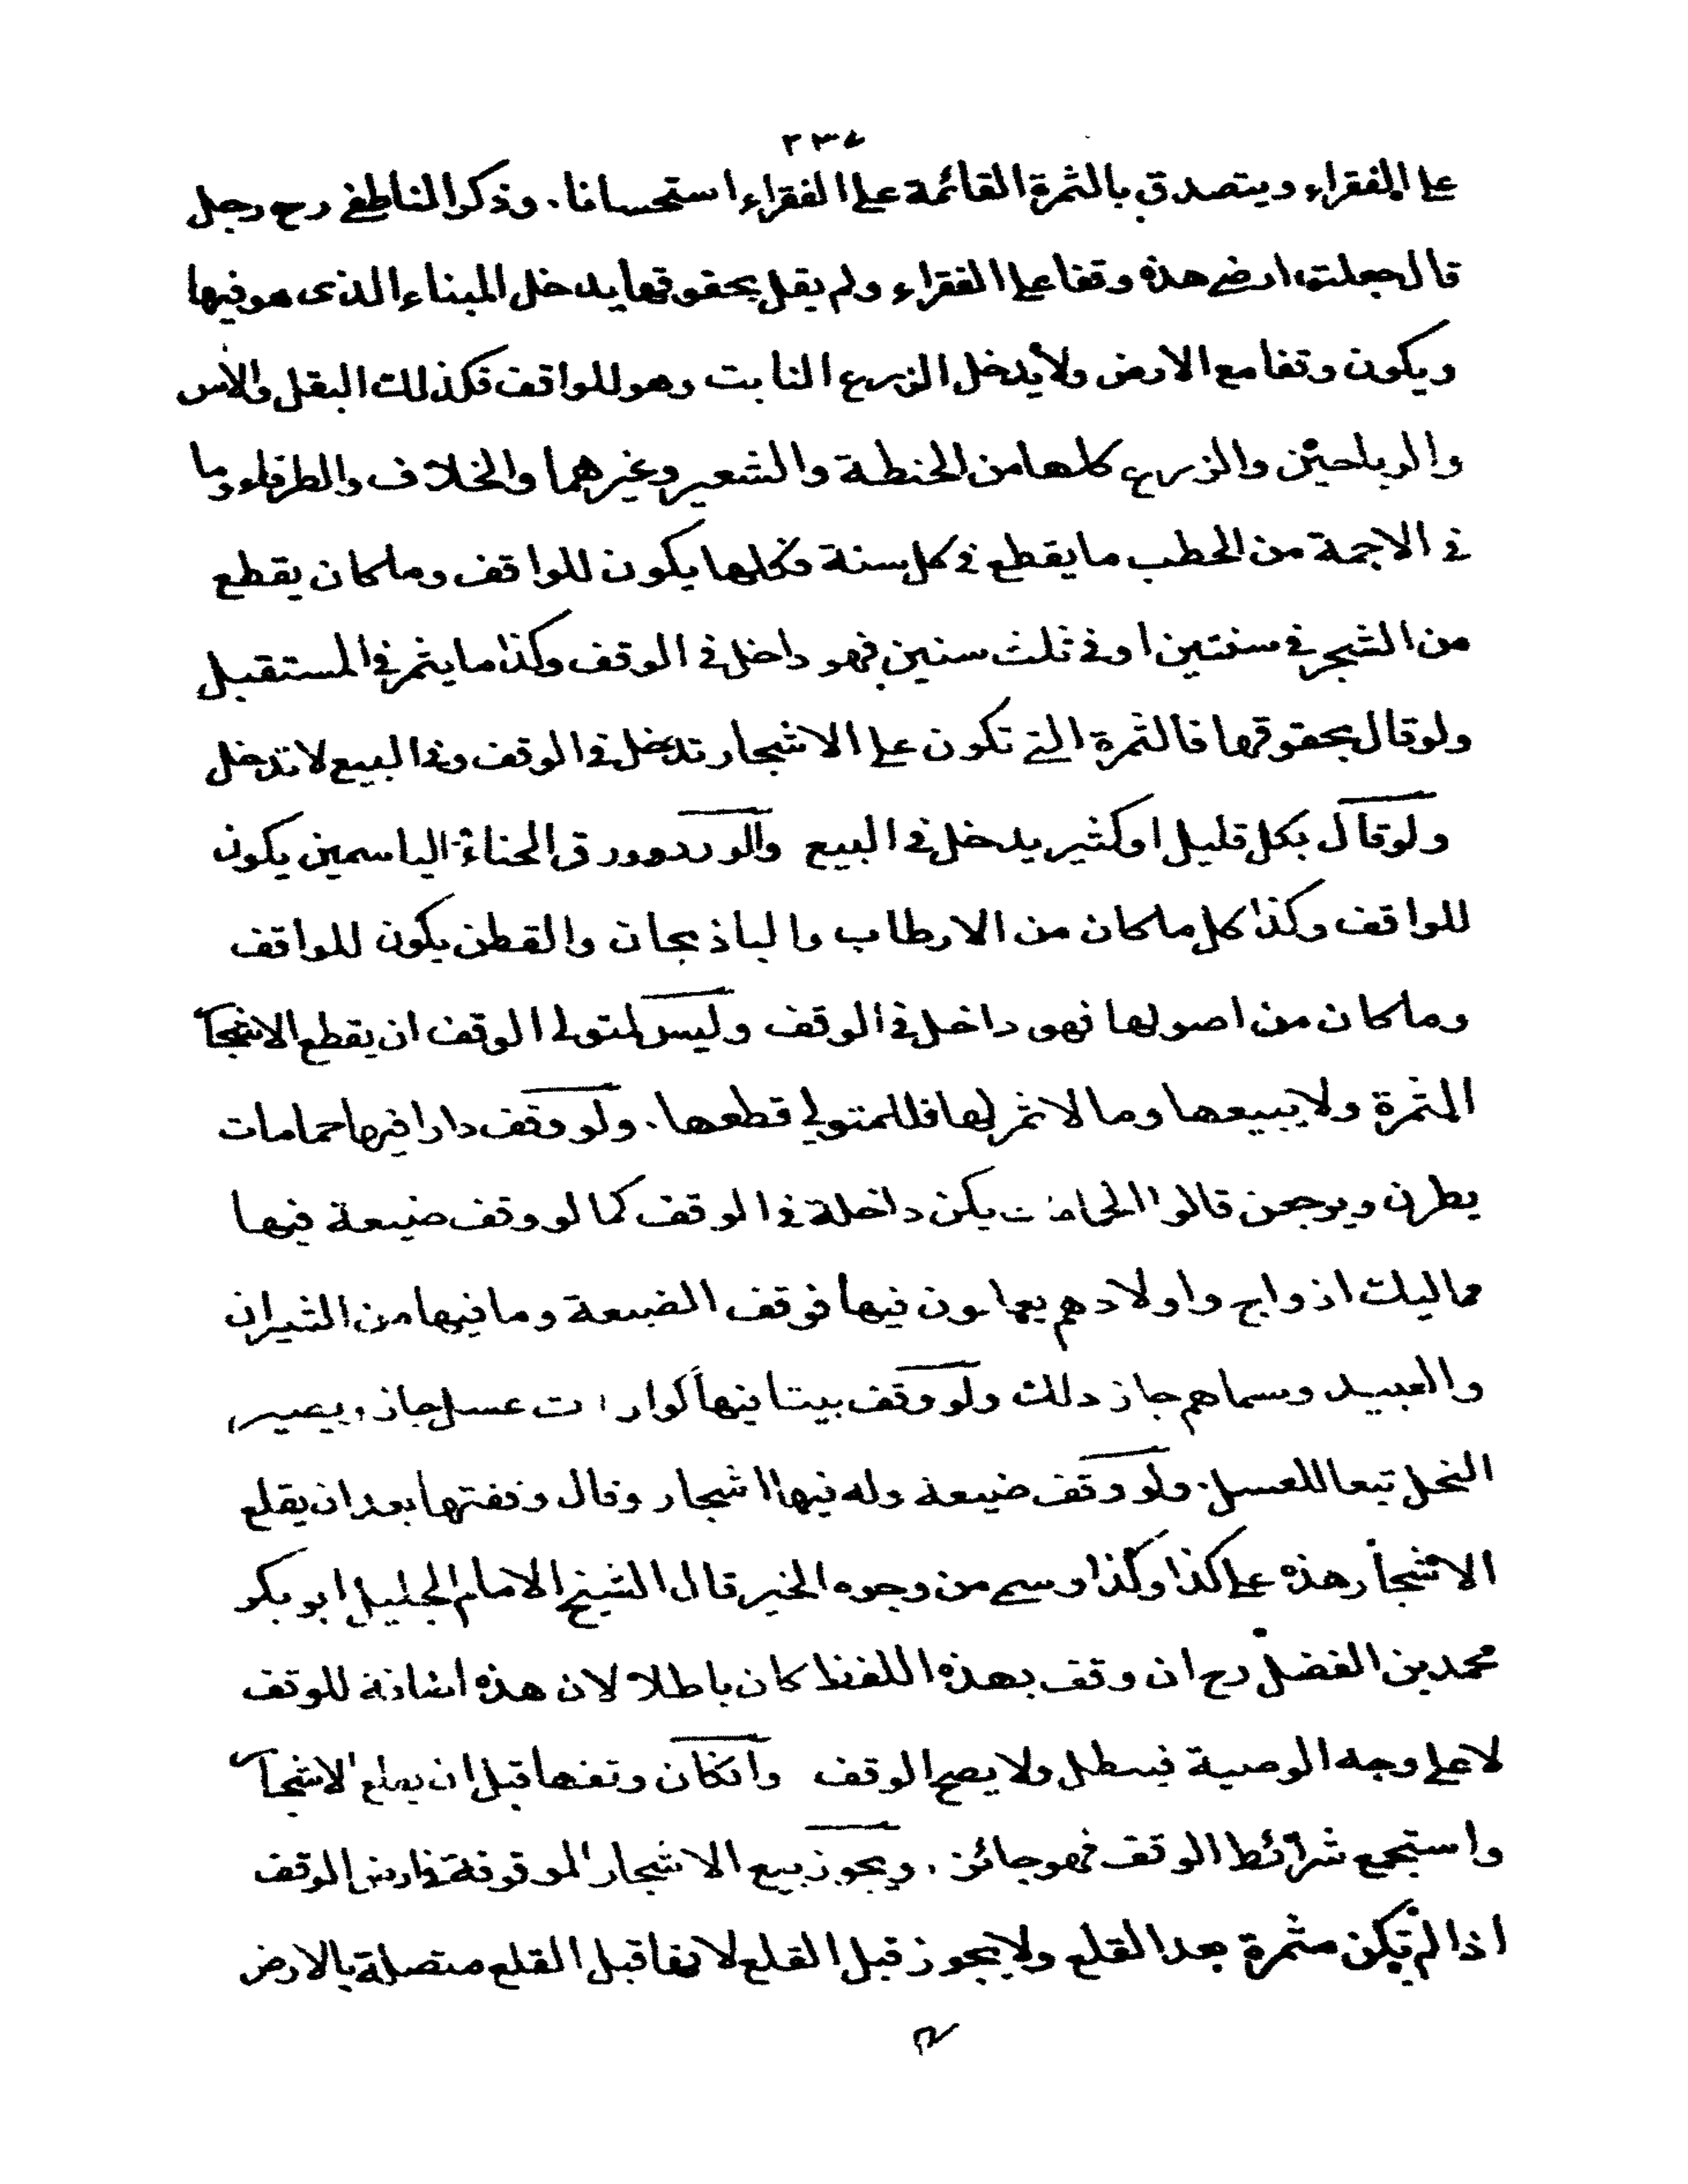 على الفقراء ويتصدق بالثمرة القائمة على الفقراء استحسانا. وذكر الناطفي رح رجل
قال جعلت ارضى هذه وقفا على الفقراء ولم يقل بحقوقها يدخل البناء الذى هو فيها
ويكون وقفا مع الارض ولا يدخل الزرع النابت وهو للواقف فكذلك البقل والآس
والرياحين والزرع كلها من الحنطة والشعير وغيرهما والخلاف والطرفاء وما
فى الاجمة من الحطب ما يقطع فى كل سنة فكلها يكون للواقف وما كان يقطع
من الشجر فى سنتين او فى ثلث سنين فهو داخل فى الوقف وكذا ما يثمر فى المستقبل
ولو قال بحقوقها فالثمرة التى تكون على الاشجار تدخل فى الوقف وفى البيع لا تدخل
ولو قال بكل قليل او كثير يدخل فى البيع والورد وورق الحناء والياسمين يكون
للواقف وكذا كل ما كان من الارطاب والباذنجان والقطن يكون للواقف
وما كان من اصولها فهو داخل فى الوقف وليس لمتولى الوقف ان يقطع الاشجار
المثمرة ولا يبيعها وما لا ثمر لها فللمتولى قطعها. ولو وقف دارا فيها حمامات
يطرن ويرجعن قالوا الحمامات يكن داخلة فى الوقف كما لو وقف ضيعة فيها
مماليك ازواج واولادهم يعملون فيها فوقف الضيعة وما فيها من الثيران
والعبيد وسماهم جاز ذلك ولو وقف بيتا فيها كوارات عسل جاز ويصير
النحل تبعا للعسل. ولو وقف ضيعة وله فيها اشجار وقال وقفتها بعد ان يقلع
الاشجار هذه على كذا وكذا وسمى من وجوه الخير قال الشيخ الامام الجليل ابو بكر
محمد بن الفضل رح ان وقف بهذه اللفظ كان باطلا لان هذه اضافة للوقف
لا على وجه الوصية فيبطل ولا يصح الوقف وان كان وقفها قبل ان يقلع الاشجار
واستجمع شرائط الوقف فهو جائز. ويجوز بيع الاشجار الموقوفة فى ارض الوقف
اذا لم تكن مثمرة بعد القلع ولا يجوز قبل القلع لانها قبل القلع متصلة بالارض